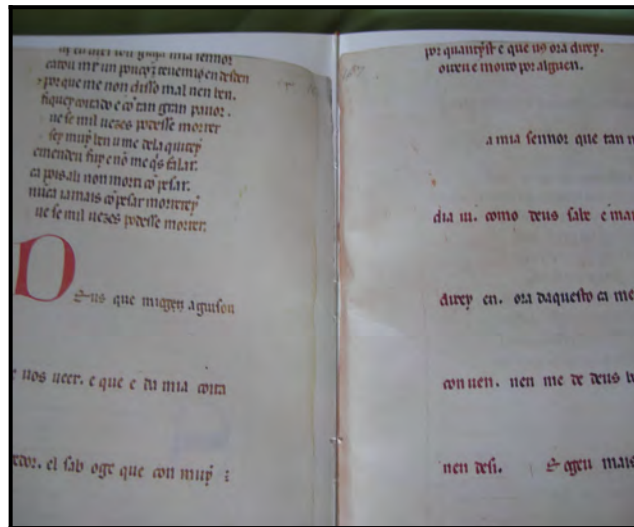 mia sennor
catou un pouco en desden
por que me non disso mal nen ben.
fiquey coitado e cõ tan gran pauor.
ue se mil uezes podesse morrer
sey muy ben u me dela quitey
fuy e nõ me qs falar.
ca pois ali non morri cõ pesar.
nuca iamais cõ pesar morrerey
ue se mil uezes podesse morrer.
Deus que mi ogeu aguisou
uos ueer. e que e da mia coita
edor. el sab oge que con muy
por e que us ora direy.
ome e moiro por alguen.
a mia sennor que tan
dia ui. como deus sabe e
direy en. ora daquesto ca me
conuen. nen me de deus
nen desi. E ogeu mais